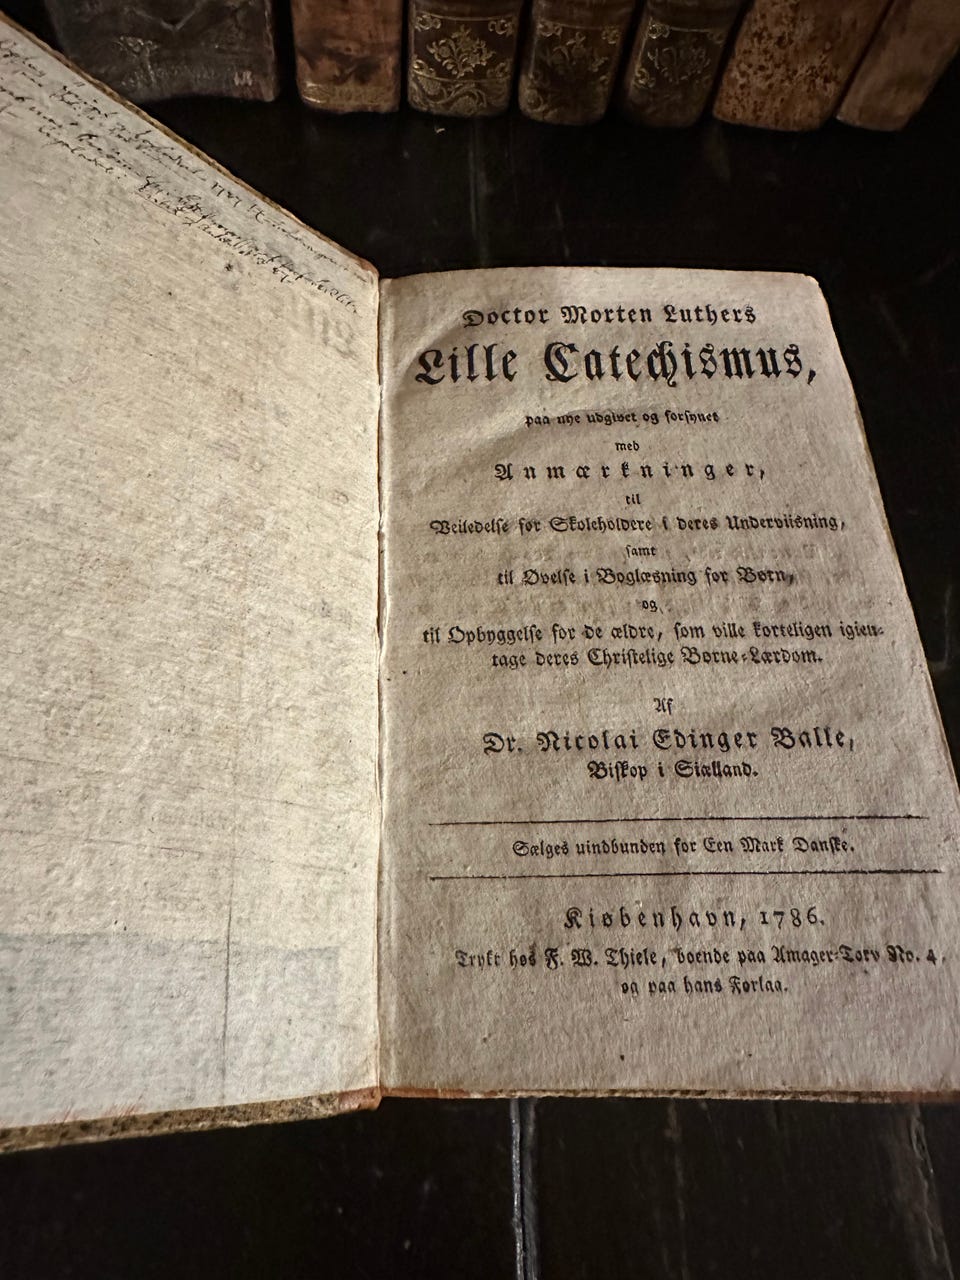 Doctor Morten Luthers
Lille Catechismus,
paa nye udgivet og forsynet
med
Anmærkninger,
til
Veiledelse for Skoleholdere i deres Underviisning,
samt
til Øvelse i Boglæsning for Børn,
og
til Opbyggelse for de ældre, som ville korteligen igien-
tage deres Christelige Børne-Lærdom.
Af
Dr. Nicolai Edinger Balle,
Biskop i Siælland.
Sælges uindbunden for Een Mark Danske.
Kiøbenhavn, 1786.
Trykt hos F. W. Thiele, boende paa Amager-Torv No. 4,
og paa hans Forlag.